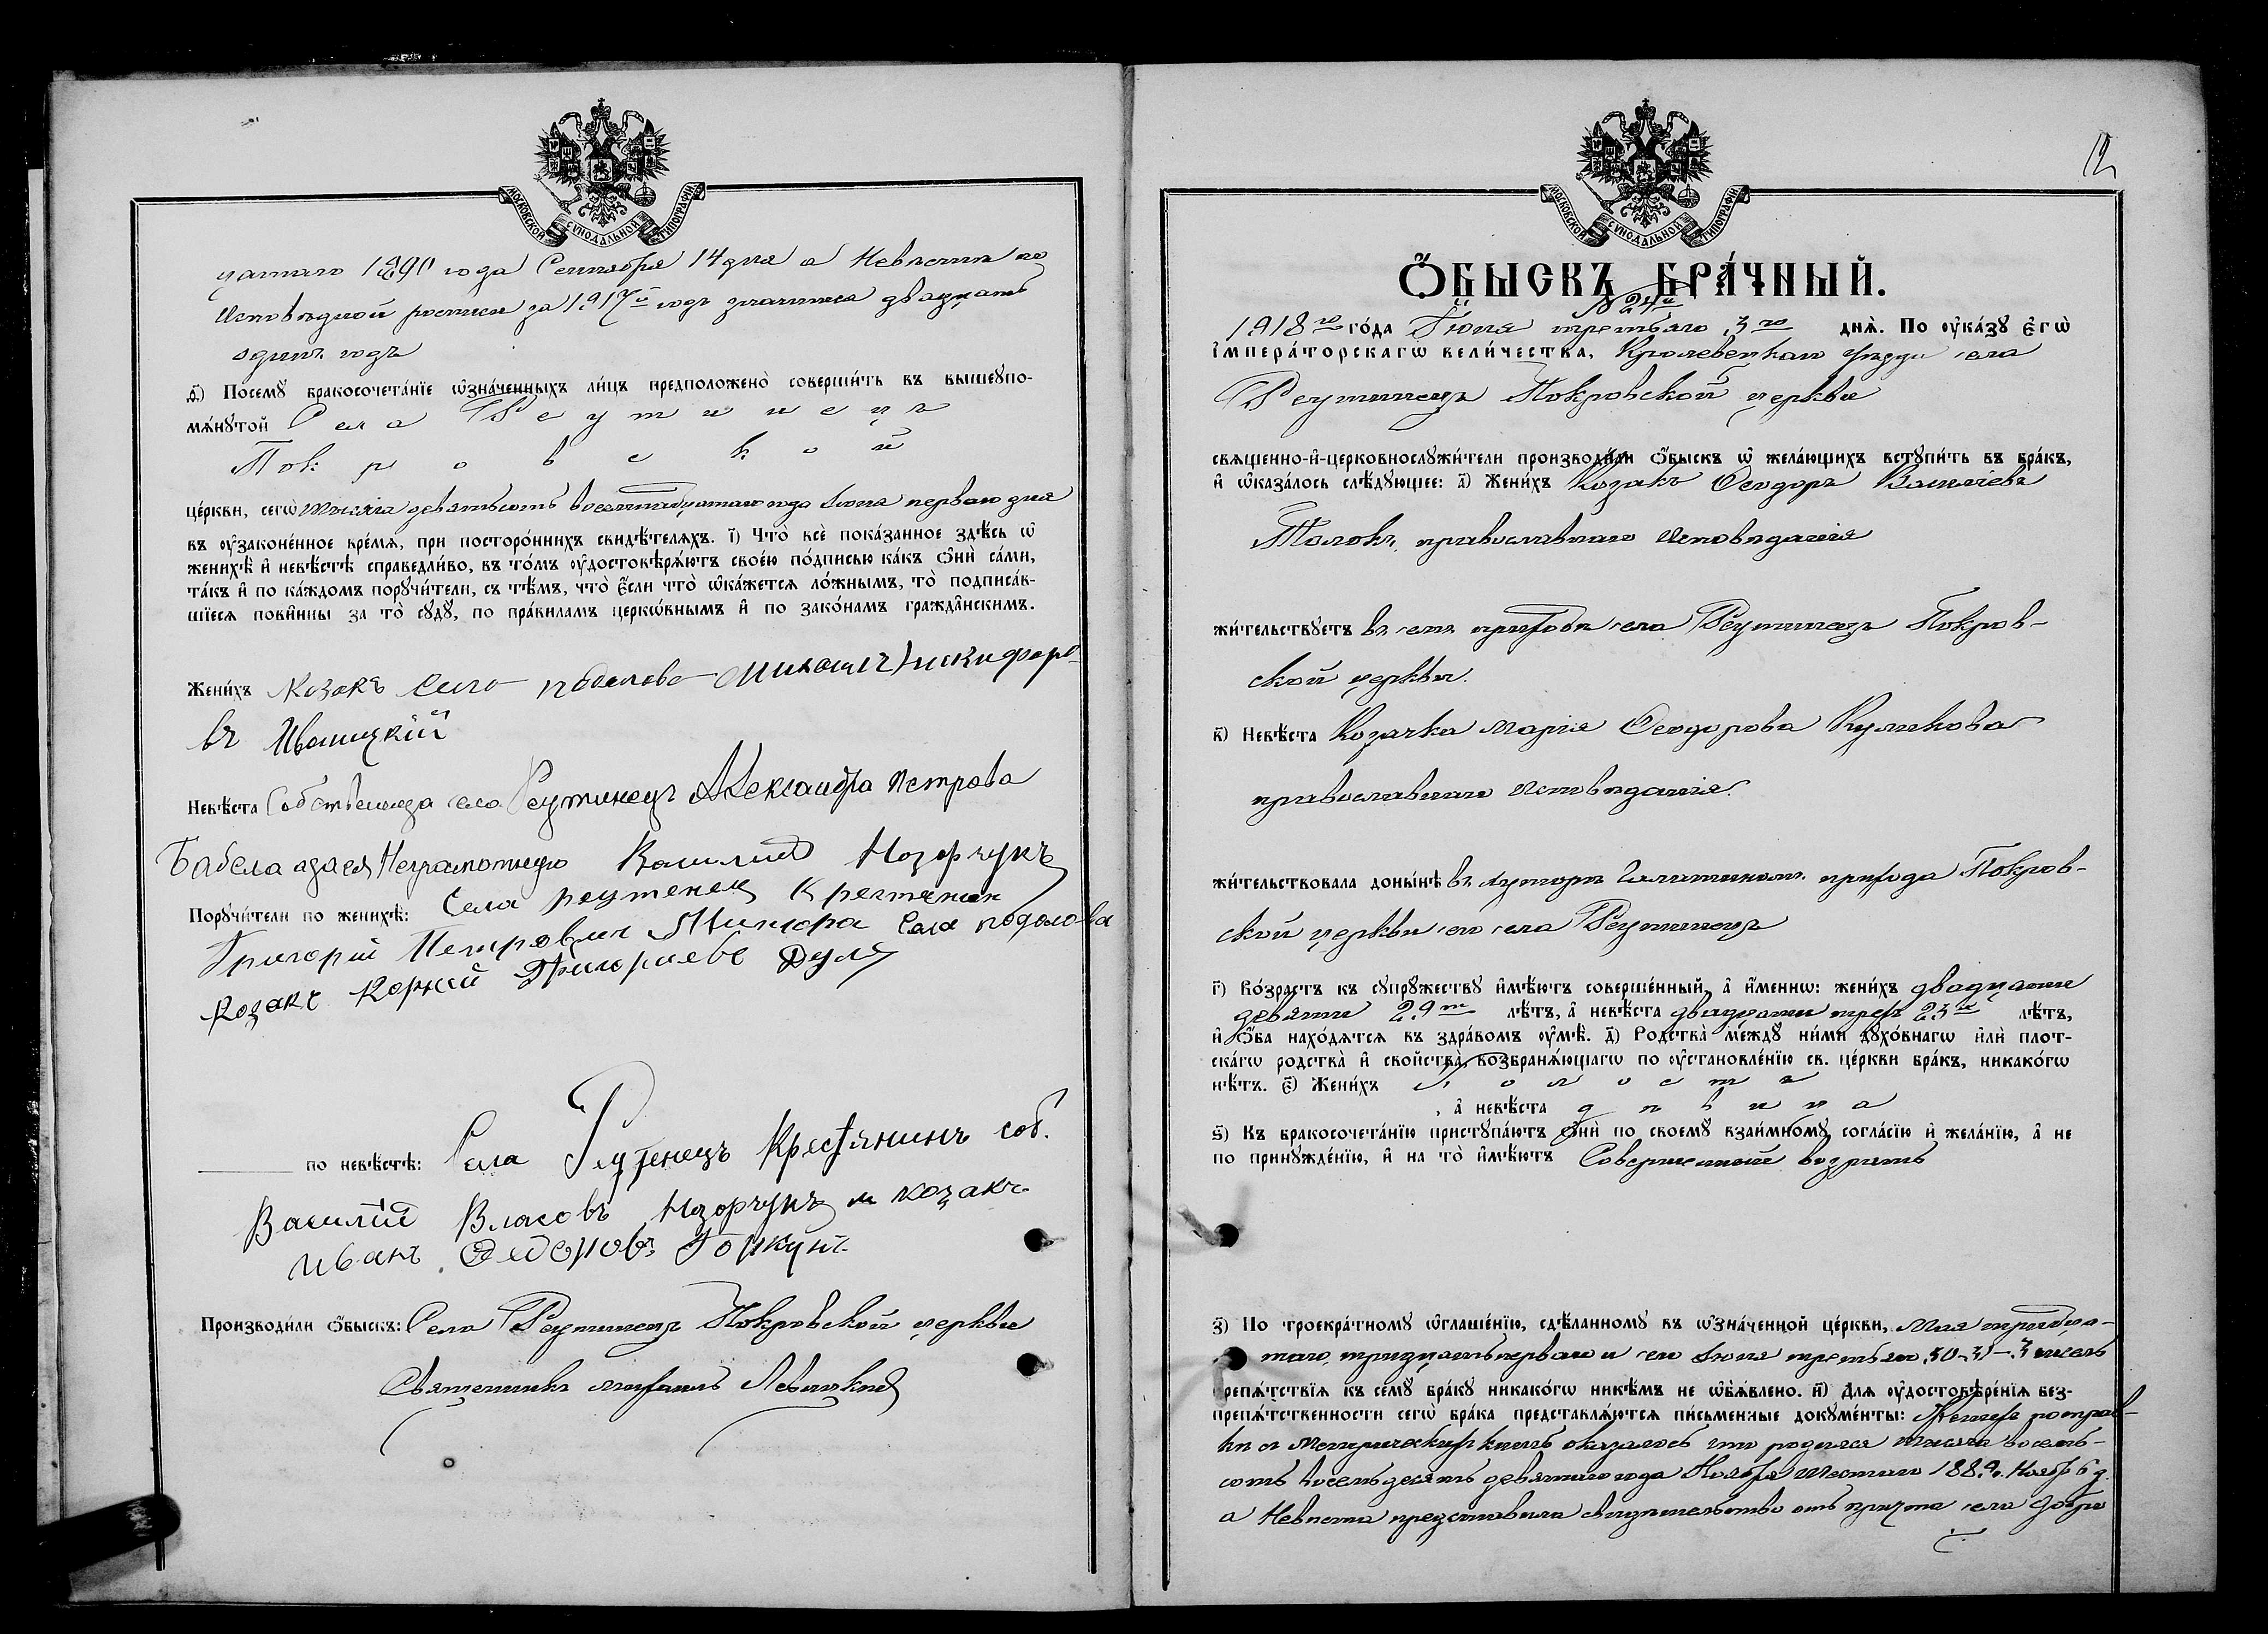 МОСКОВСКОЙ СѴНОДАЛЬНОЙ ТИПОГРАФІИ
цатаго 1890 года Сентября 14 дня а Невѣста по
Исповѣдной росписи за 1917й годъ значится двадцать
одинъ годъ
д҃і) Посемꙋ̀ бракосочета́нїе ѡ҆зна́ченныхъ ли́цъ предположено̀ соверши́ть въ вышеꙋпо-
мѧ́нꙋтой Села Реутинецъ
Покровской
це́ркви, сегѡ̀ тысяча девятьсотъ восемнадцатаго года Іюня перваго дня
въ ᲂу҆законе́нное вре́мѧ, при посторо́ннихъ свидѣ́телѧхъ. і҃) Что̀ всѐ пока́занное здѣ́сь ѡ҆
женихѣ̀ и҆ невѣ́стѣ справедли́во, въ то́мъ ᲂу҆достовѣрѧ́ютъ свое́ю по́дписью ка́къ ѻ҆нѝ са́ми,
та́къ и҆ по ка́ждомъ порꙋчи́тели, съ тѣ́мъ, что̀ є҆́сли что̀ ѡ҆ка́жетсѧ ло́жнымъ, то̀ подписа́в-
шїесѧ пови́нны за то̀ сꙋдꙋ̀, по пра́виламъ церко́внымъ и҆ по зако́намъ гражда́нскимъ.
Жени́хъ Козакъ Села подолова Михаилъ Никифоро-
въ Ивницкій
Невѣ́ста Собственица села Реутинецъ Александра Петрова
Бабела а за ея Неграмотную Василий Назорчукъ
Порꙋчи́тели по женихѣ̀: Села реутенец Крестянин
Григорій Петрович Села подолова
Козакъ Корней Григориевъ Дуля
по невѣ́стѣ: Села Реутенецъ Крестянинъ соб.
Василій Власовъ Назорчукъ и козакъ
Иванъ Федоровъ
Производи́ли ѻ҆́быскъ: Села Реутинецъ Покровской церкви
Священникъ Михаилъ Левицкій
12
МОСКОВСКОЙ СѴНОДАЛЬНОЙ ТИПОГРАФІИ
Ѻ҆́БЫСКЪ БРА́ЧНЫЙ.
№ 24й
1918го го́да Іюня третьяго 3го днѧ̀. По ᲂу҆ка́зꙋ Є҆гѡ̀
І҆мпера́торскагѡ вели́чества, Кролевецкаго уѣзда села
Реутинецъ Покровской церкви
свѧщенно-и҆-церковнослꙋжи́тели производи́ли ѻ҆́быскъ ѡ҆ жела́ющихъ встꙋпи́ть въ бра́къ,
и҆ ѡ҆каза́лось слѣ́дꙋющее: а҃) Жени́хъ Козакъ Ѳеодоръ Василіевъ
Толокъ, православнаго Исповѣданія
жи́тельствꙋетъ въ семъ приходѣ села Реутинецъ Покров-
ской церкви.
в҃) Невѣ́ста Козачка Марія Ѳеодорова Куликова
православнаго Исповѣданія.
жи́тельствовала доны́нѣ въ хуторѣ прихода Покров-
ской церкви сего села Реутинецъ
г҃) Во́зрастъ къ сꙋпрꙋ́жествꙋ и҆мѣ́ютъ соверше́нный, а҆ и҆́меннѡ: жени́хъ двадцати
девяти 29ти лѣ́тъ, а҆ невѣ́ста двадцати трех 23х лѣ́тъ,
и҆ ѻ҆́ба нахо́дѧтсѧ въ здра́вомъ ᲂу҆мѣ̀. д҃) Родства̀ ме́ждꙋ ни́ми дꙋхо́внагѡ и҆лѝ плот-
ска́гѡ родства̀ и҆ сво́йства, возбранѧ́ющагѡ по ᲂу҆становле́нїю св. це́ркви бра́къ, никако́гѡ
нѣ́тъ. є҃) Жени́хъ Холостъ
, а҆ невѣ́ста дѣвица
ѕ҃) Къ бракосочета́нїю пристꙋпа́ютъ ѻ҆нѝ по своемꙋ̀ взаи́мномꙋ согла́сїю и҆ жела́нїю, а҆ не
по принꙋжде́нїю, и҆ на то̀ и҆мѣ́ютъ Совершенный возрастъ
з҃) По троекра́тномꙋ ѡ҆глаше́нїю, сдѣ́ланномꙋ въ ѡ҆зна́ченной це́ркви, Мая тридца-
таго, тридцать перваго и сего Іюня третьяго, 30-31-3 чиселъ
препѧ́тствїѧ къ семꙋ̀ бра́кꙋ никако́гѡ никѣ́мъ не ѡ҆б̾ѧ́влено. и҃) Длѧ ᲂу҆достовѣре́нїѧ без-
препѧ́тственности сегѡ̀ бра́ка представлѧ́ютсѧ пи́сьменные докꙋме́нты: Жениха по справ-
кѣ съ Метрическихъ книгъ оказалось что родился тысяча восемь-
сотъ восемьдесятъ девятаго года Ноября Шестаго 1889г. Нояб 6 д.
а Невѣста представила свидѣтельство отъ причта села